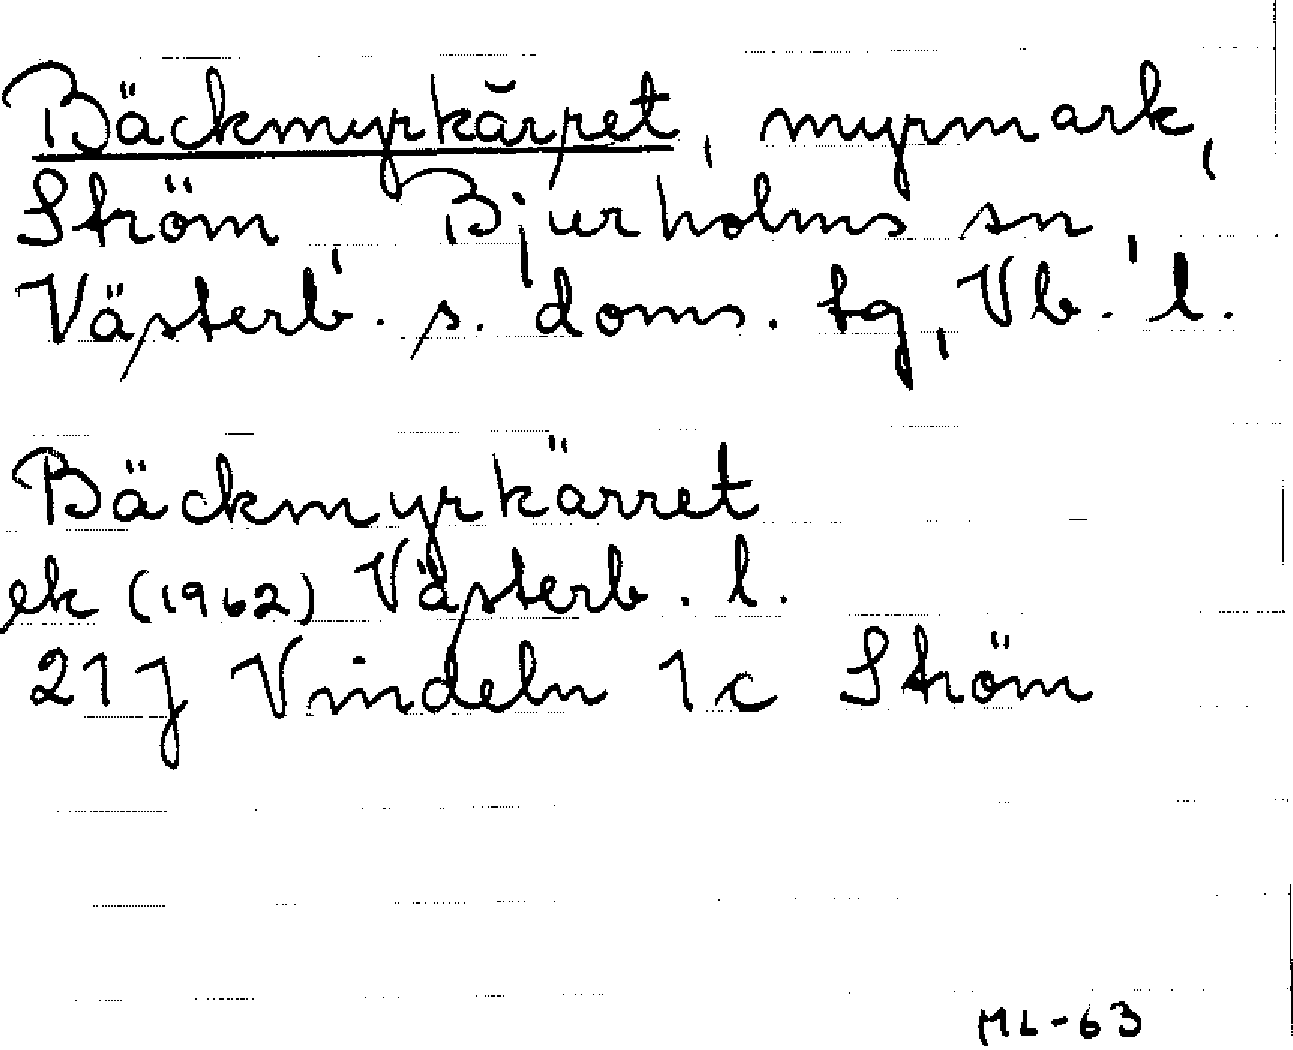 Bäckmyrkärret, myrmark,
Ström, Bjurholms sn,
Västerb. s. doms. tg, Vb. l.
Bäckmyrkärret
ek (1962) Västerb. l.
21 J Vindeln 1 c Ström
ML-63